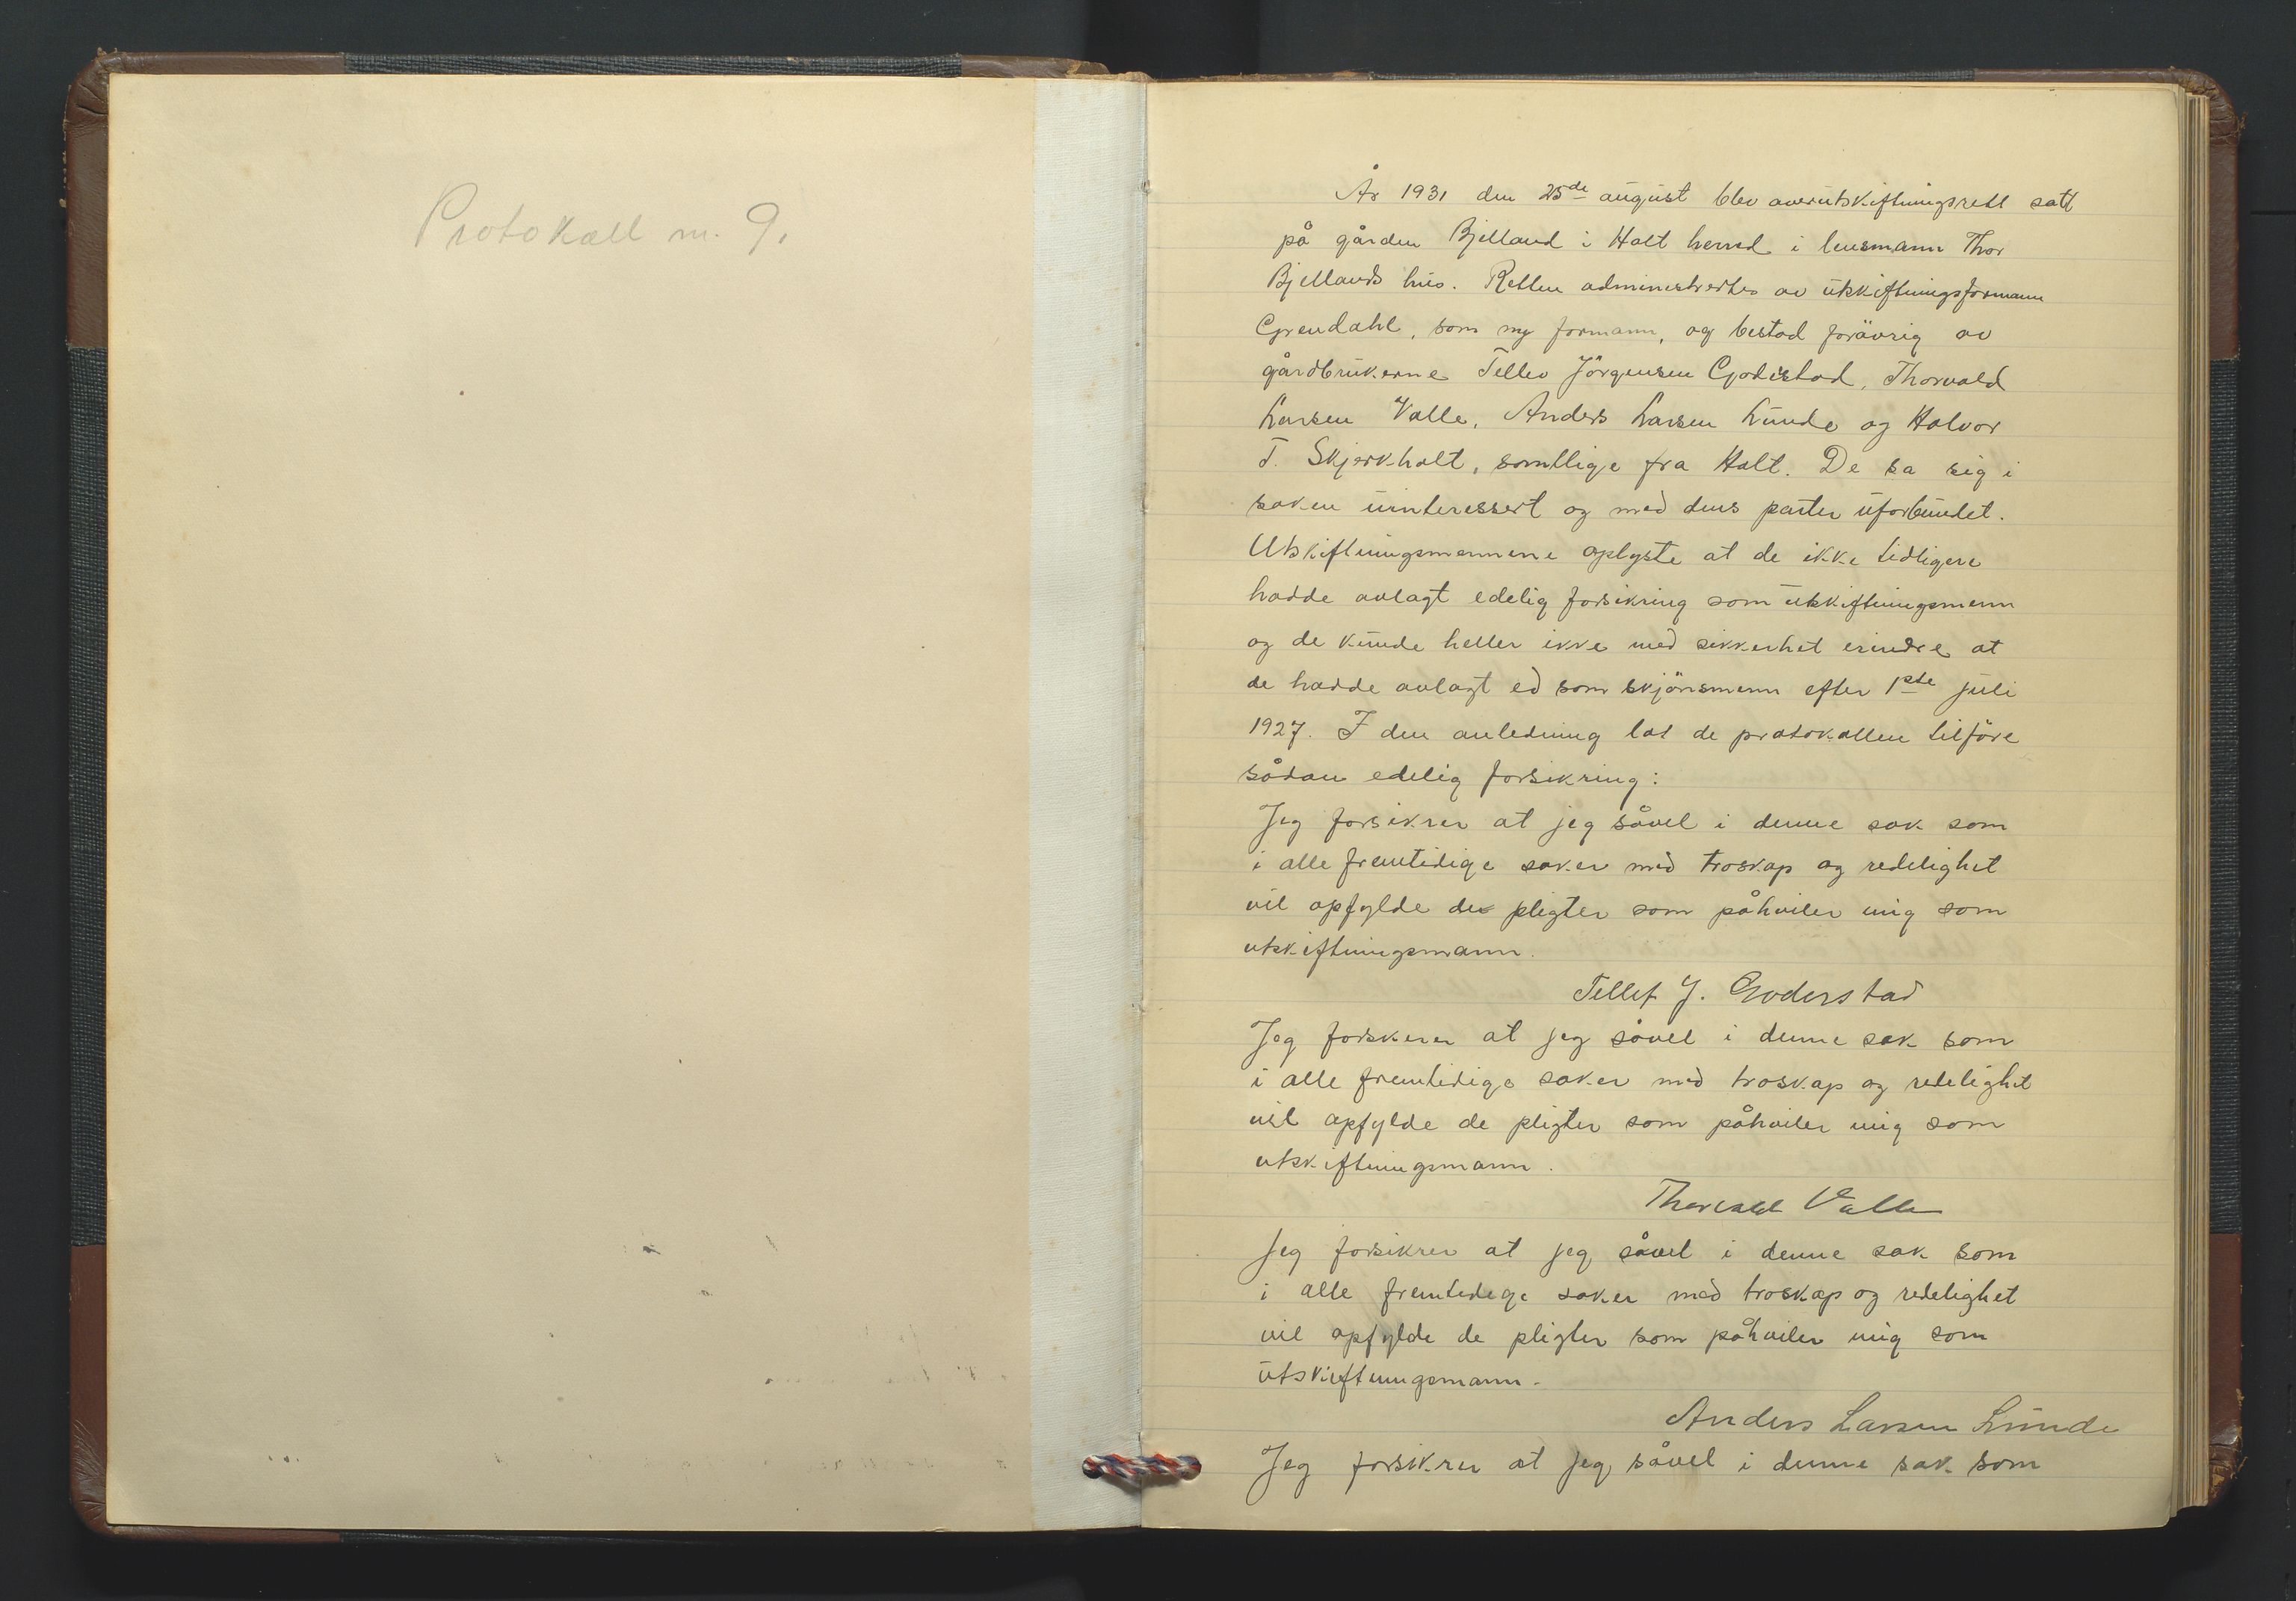 Protokoll nr. 9.
År 1931 den 25de august blev overutskiftningsrett satt
på gården Bjelland i Holt herred i lensmann Thor
Bjellands hus. Retten administrertes av utskiftningsformann
Grendahl, som ny formann, og bestod forøvrig av
gårdbrukerne Tellev Jörgensen Goderstad, Thorvald
Larsen Valle, Anders Larsen Lunde og Halvor
T. Skjerkholt, samtlige fra Holt. De sa sig i
saken uinteressert og med dens parter uforbundet.
Utskiftningsmennene oplyste at de ikke tidligere
hadde avlagt edelig forsikring som utskiftningsmenn
og de kunde heller ikke med sikkerhet erindre at
de hadde avlagt ed som skjönsmenn efter 1ste juli
1927. I den anledning lot de protokollen tilföre
sådan edelig forsikring:
Jeg forsikrer at jeg såvel i denne sak som
i alle fremtidige saker med troskap og redelighet
vil opfylde de pligter som påhviler mig som
utskiftningsmann.
Tellef J. Goderstad
Jeg forskerer at jeg såvel i denne sak som
i alle fremtidige saker med troskap og redelighet
vil opfylde de pligter som påhviler mig som
utskiftningsmann.
Thorvald Valle
Jeg forsikrer at jeg såvel i denne sak som
i alle fremtidege saker med troskap og redelighet
vil opfylde de pligter som påhviler mig som
utskiftningsmann.
Anders Larsen Lunde
Jeg forsikrer at jeg såvel i denne sak som